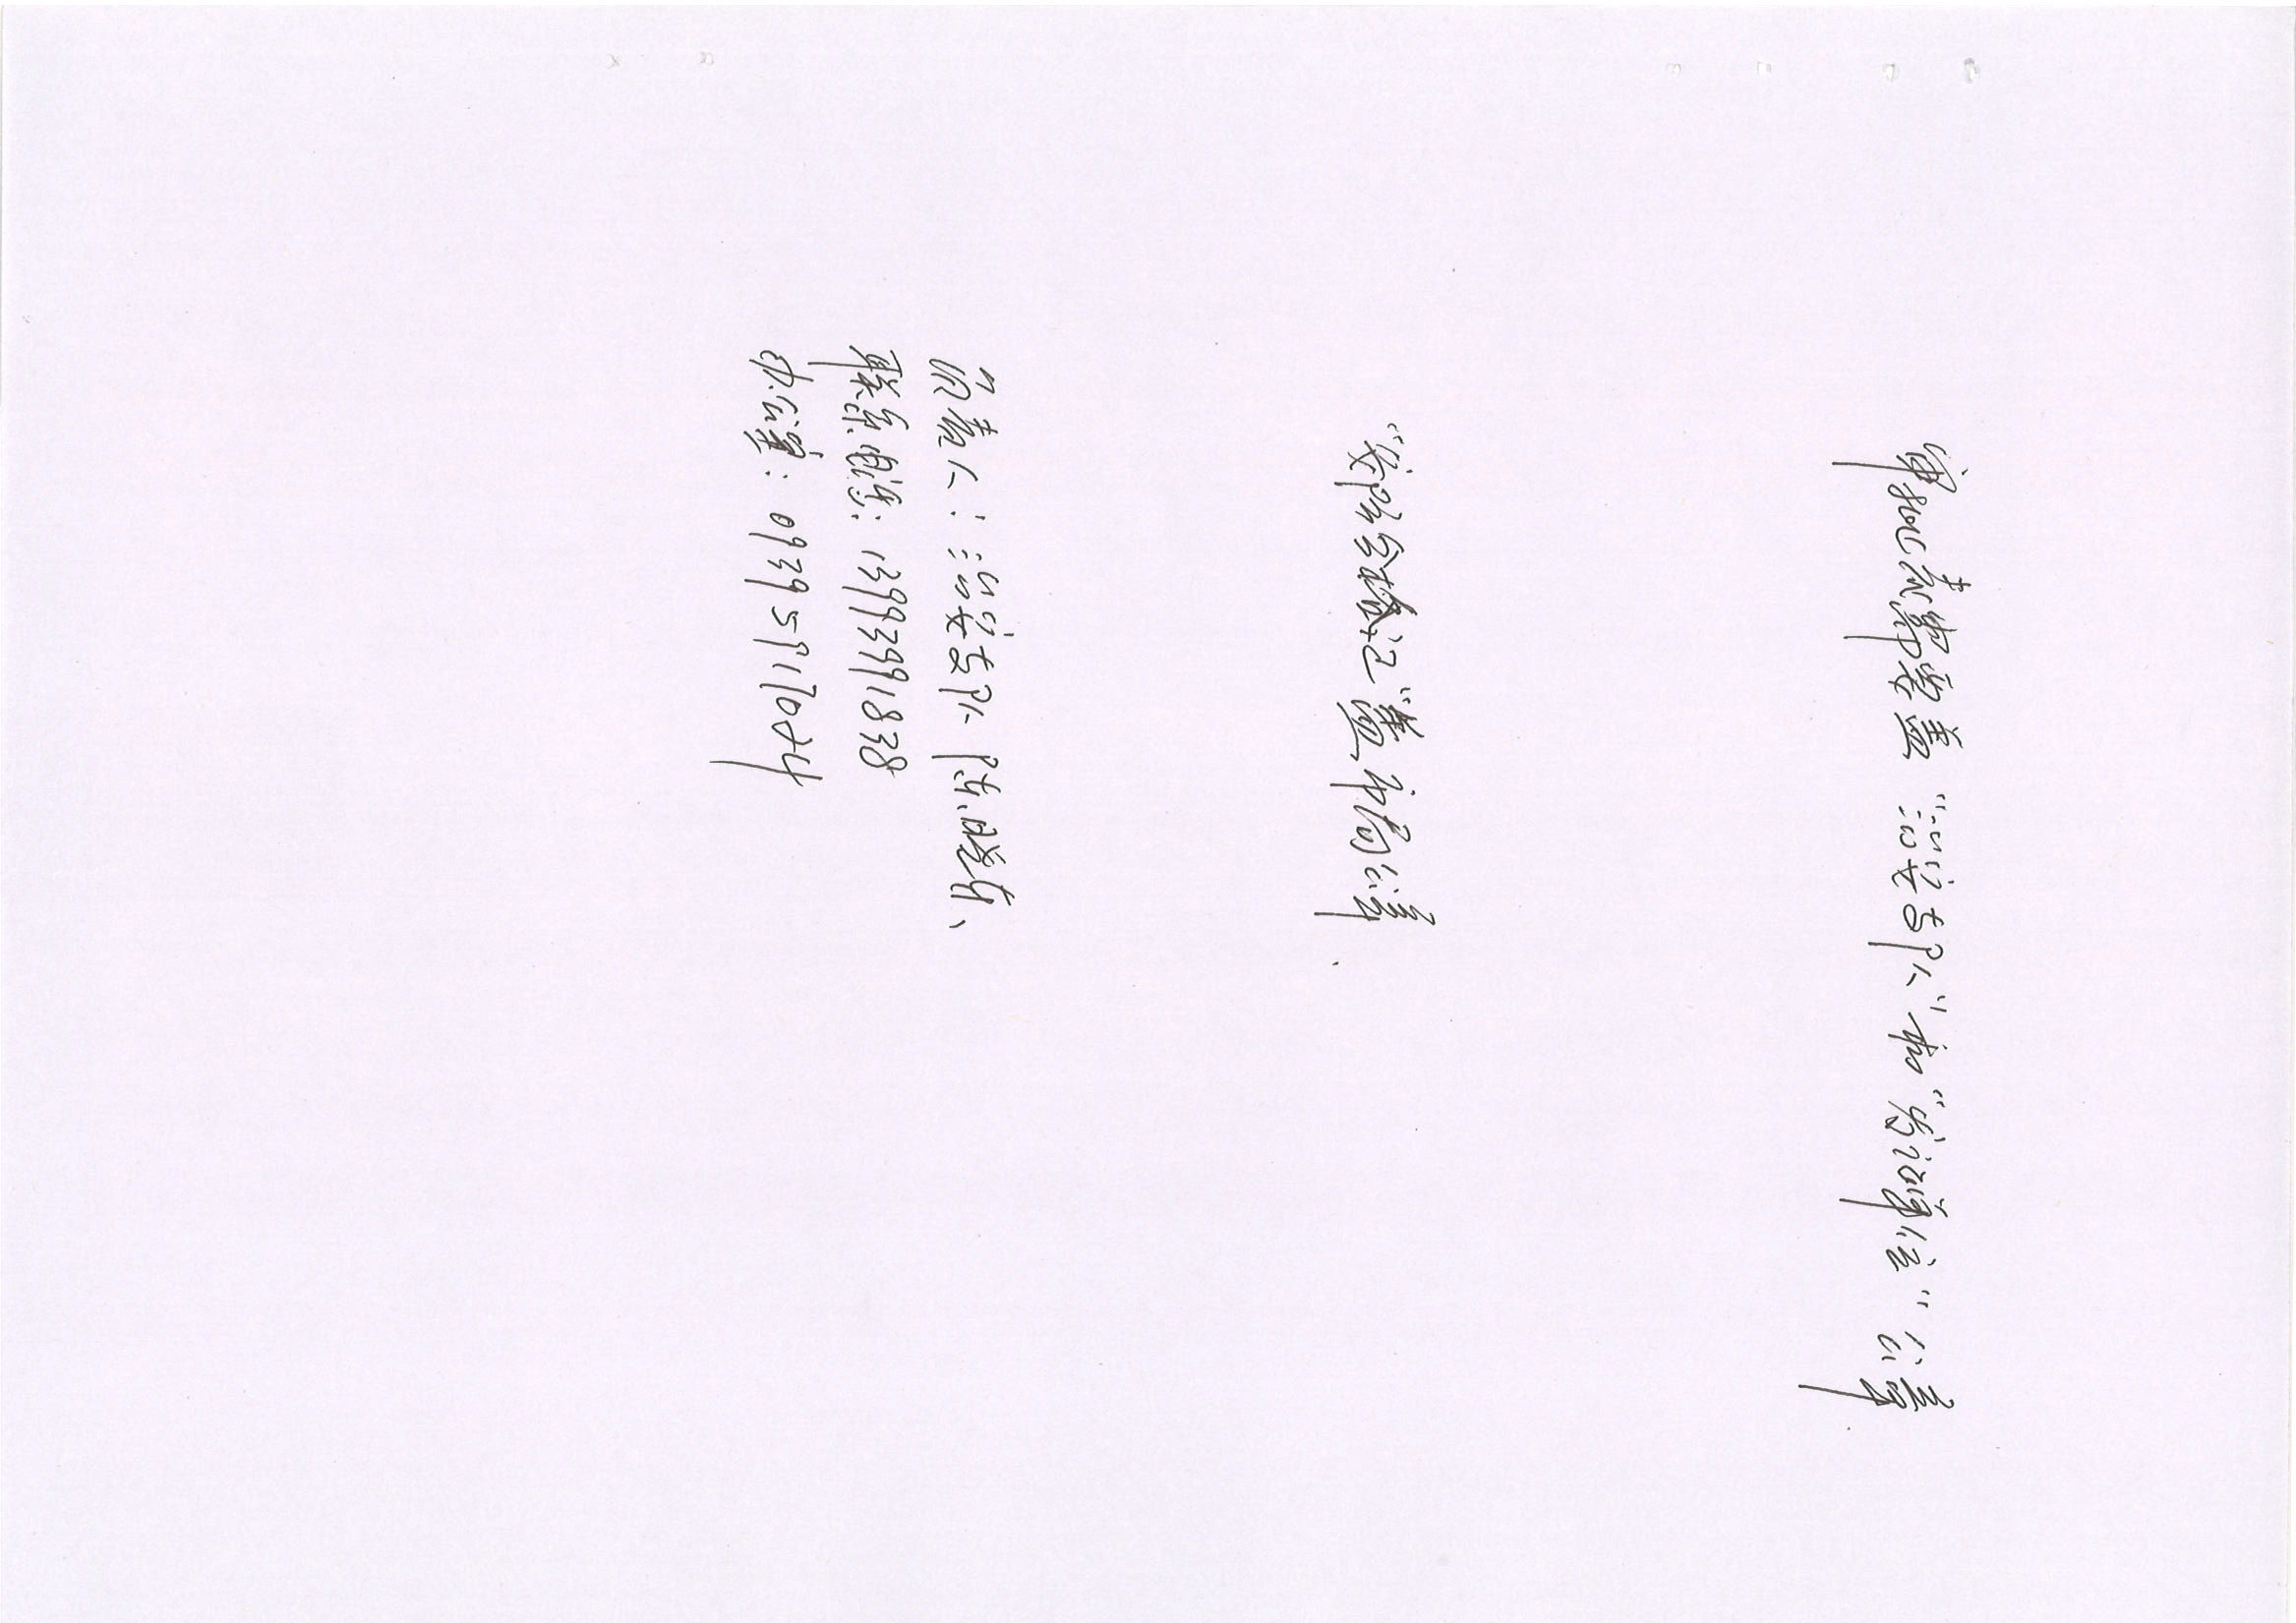 审批表需要盖“治安支队”和“发证单位”公章.
“安防合格证”盖市局公章.
负责人：治安支队 陈晓东、
联系电话：13993991838
办公室：09395917024